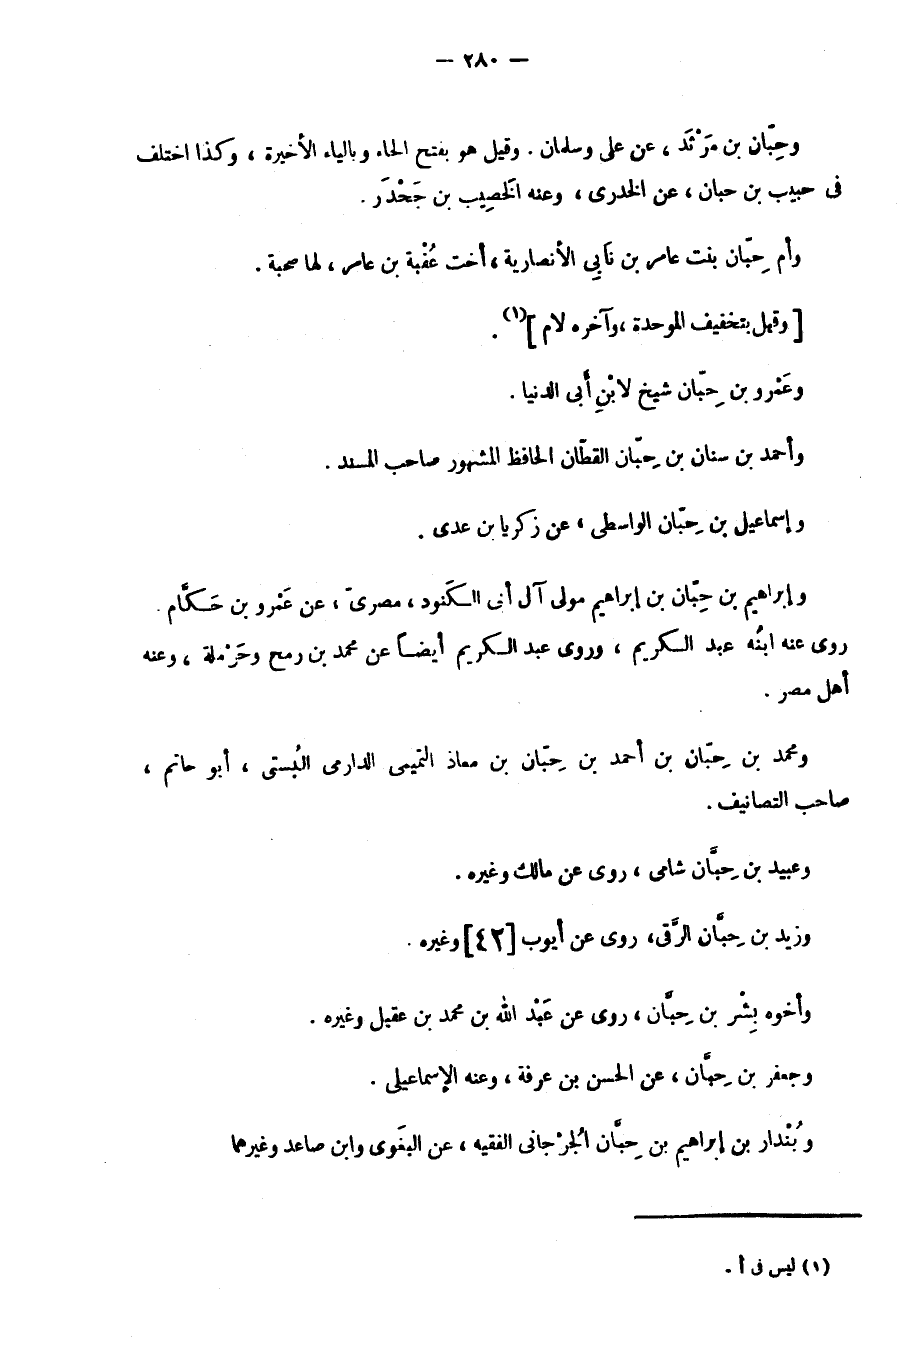 — ٢٨٠ —
وحِبّان بن مَرْثَد ، عن على وسلمان . وقيل هو بفتح الحاء وبالياء الأخيرة ، وكذا اختلف
فى حبيب بن حبان ، عن الخدرى ، وعنه الخَصِيب بن جَحْدَر .
وأم حِبّان بنت عامر بن نَابِي الأنصارية ، أخت عُقْبة بن عامر ، لها صحبة .
[ وقيل بتخفيف الموحدة ، وآخره لام ](١) .
وعَمْرو بن حِبّان شيخ لابْنِ أَبى الدنيا .
وأحمد بن سنان بن حِبّان القطّان الحافظ المشهور صاحب المسند .
وإسماعيل بن حِبّان الواسطى ، عن زكريا بن عدى .
وإبراهيم بن حِبّان بن إبراهيم مولى آل أبى الكَنود ، مصرىّ ، عن عَمْرو بن حَكَّام .
روى عنه ابنُه عبد الكريم ، وروى عبد الكريم أيضاً عن محمد بن رمح وحَرْملة ، وعنه
أهل مصر .
ومحمد بن حِبّان بن أحمد بن حِبّان بن معاذ التميمى الدارمى البُستى ، أبو حاتم ،
صاحب التصانيف .
وعبيد بن حِبَّان شامى ، روى عن مالك وغيره .
وزيد بن حِبَّان الرَّقى، روى عن أيوب [٤٢] وغيره .
وأخوه بِشْر بن حِبَّان ، روى عن عَبْد الله بن محمد بن عقيل وغيره .
وجعفر بن حِبَّان ، عن الحسن بن عرفة ، وعنه الإسماعيلى .
وبُنْدار بن إبراهيم بن حِبَّان الجُرْجانى الفقيه ، عن البغَوى وابن صاعد وغيرهما
(١) ليس فى أ .